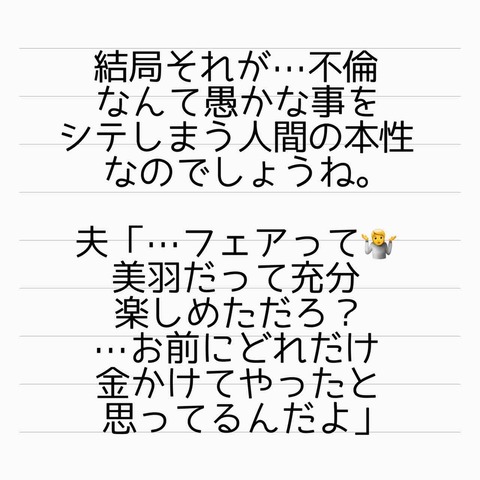 結局それが…不倫
なんて愚かな事を
シテしまう人間の本性
なのでしょうね。
夫「…フェアって🤷
美羽だって充分
楽しめただろ？
…お前にどれだけ
金かけてやったと
思ってるんだよ」